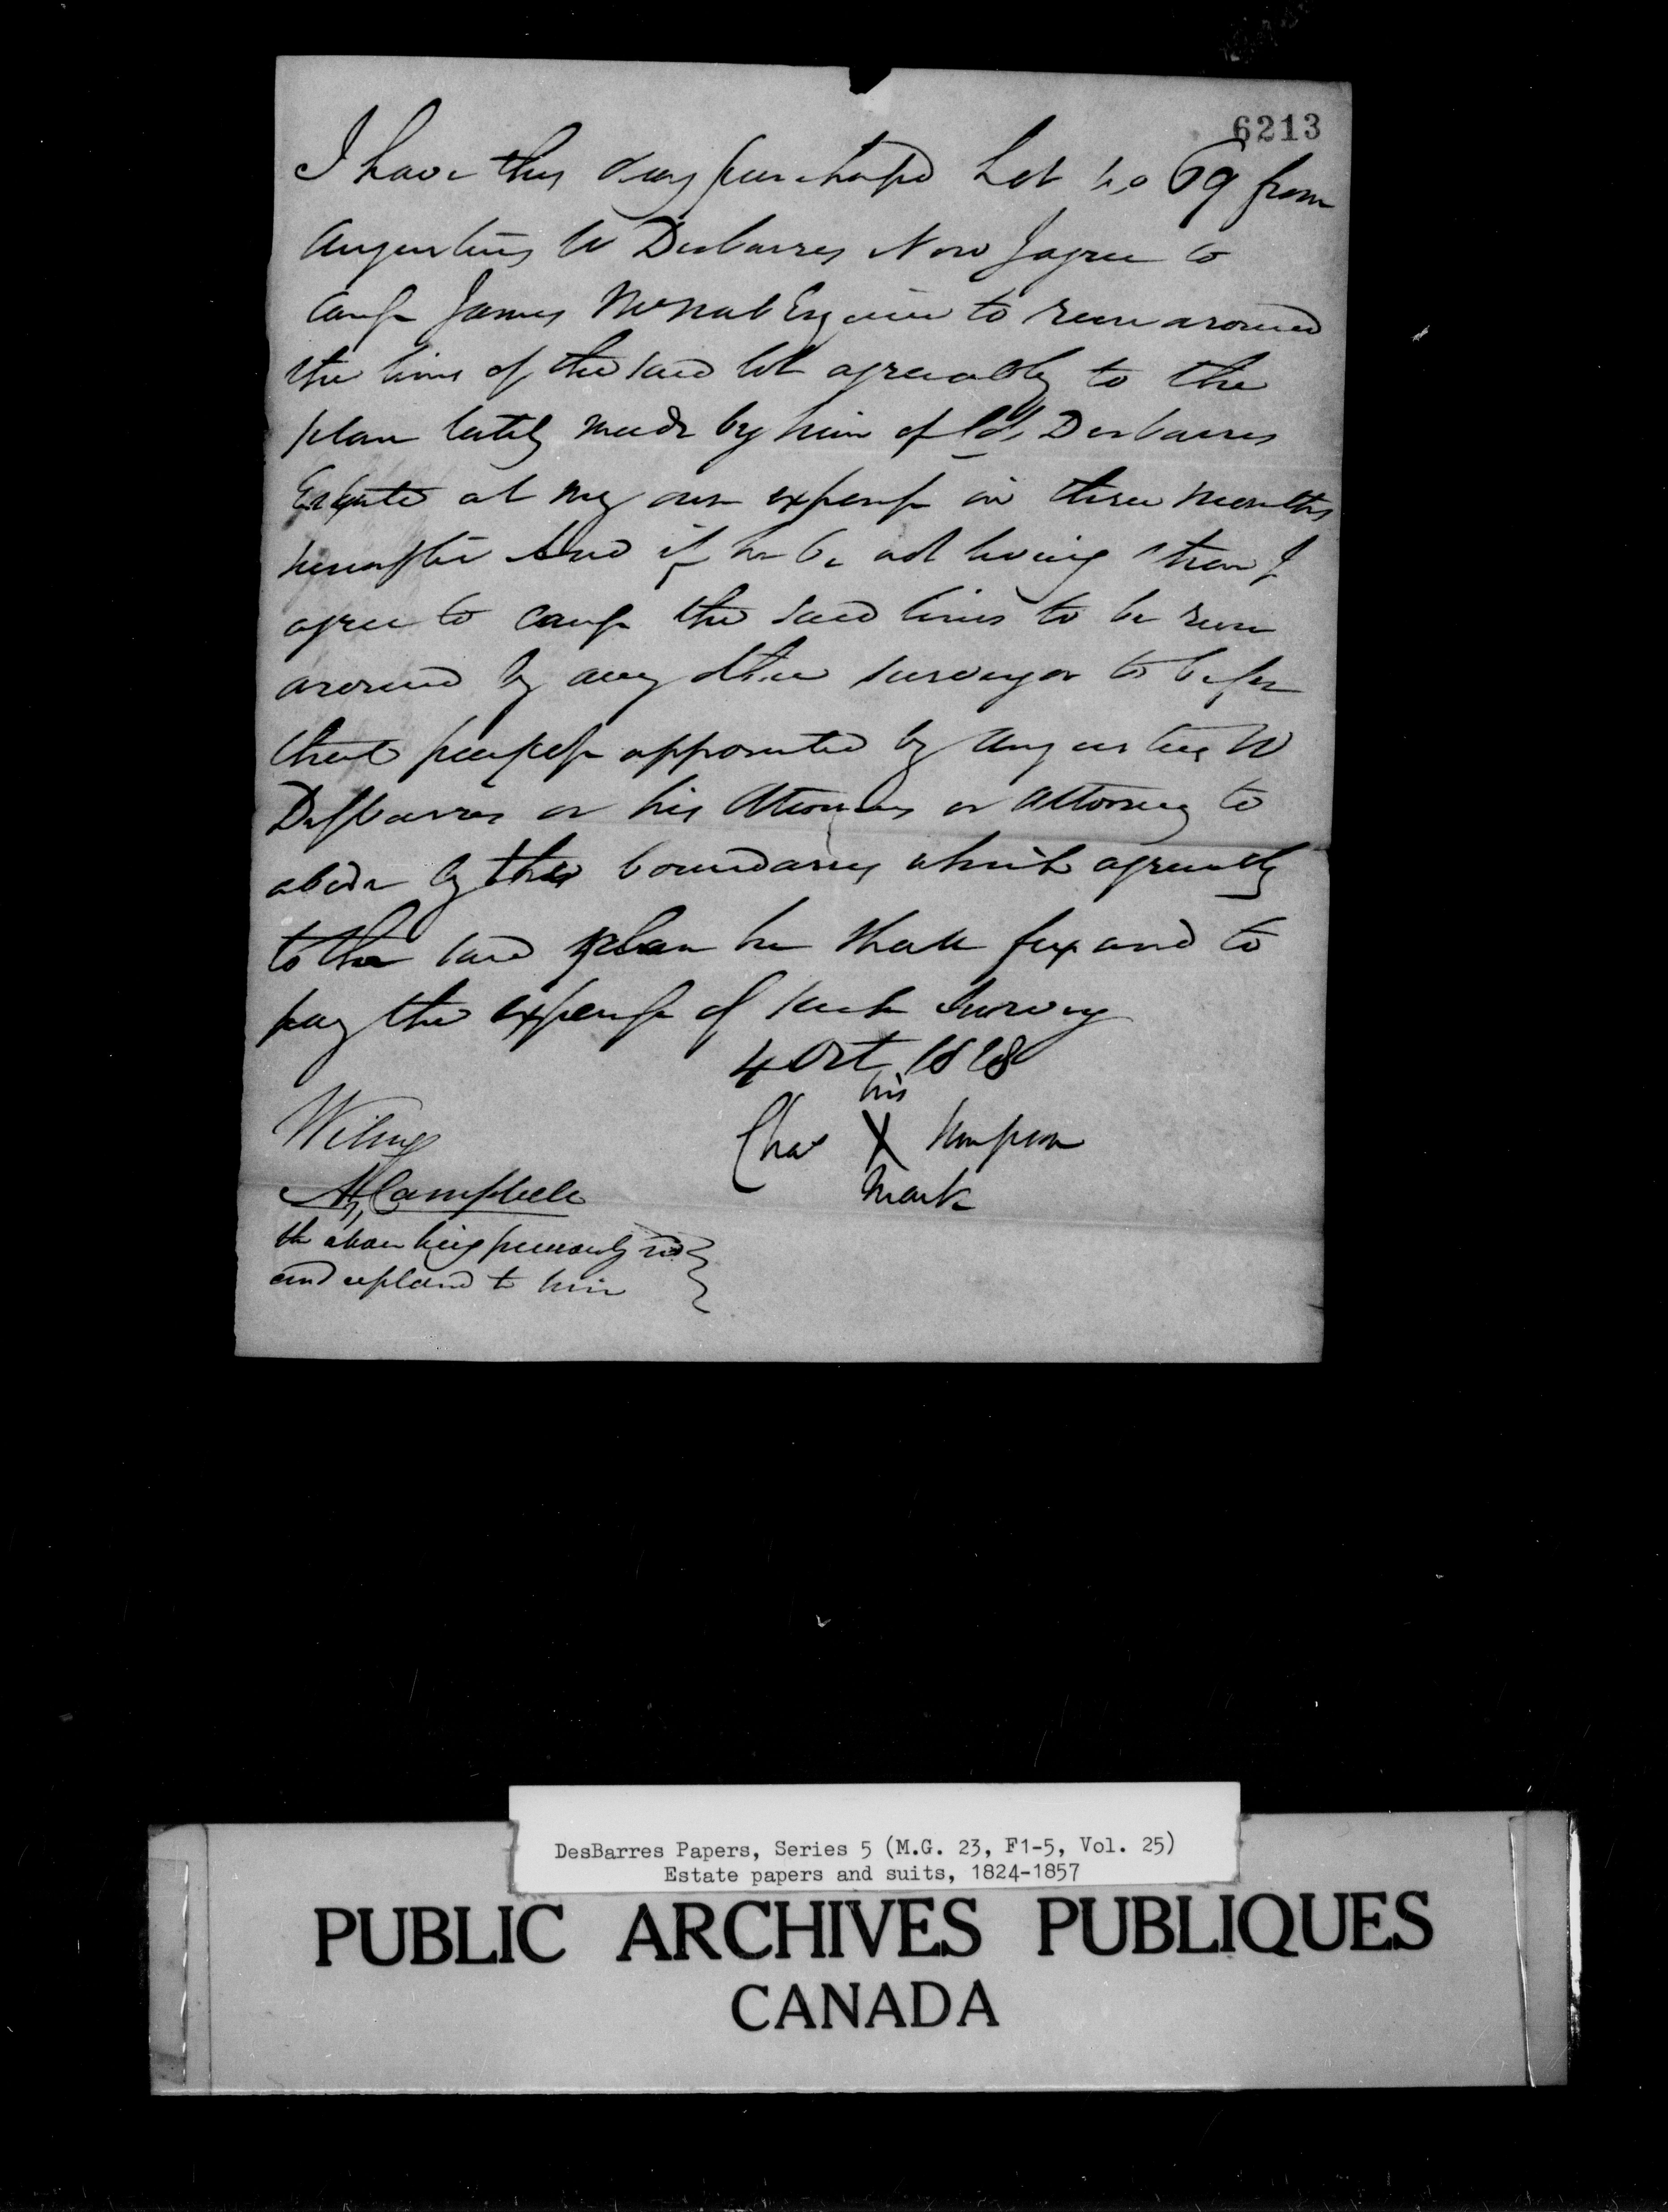 6213
I have this day purchased Lot No 69 from
Augustus W Desbarres Now I agree to
cause James McNab Esquire to run around
the lines of the said lot agreeably to the
plan lately made by him of Col. Desbarres
Estate at my own expense in three months
hereafter And if he be not living then I
agree to cause the said lines to be run
around by any other surveyor to be for
that purpose appointed by Augustus W
Desbarres or his Attornies or Attorney to
abide by the boundaries which agreeably
to the said plan he shall fix and to
pay the expense of such survey
4 Oct 1828
his
Chas X Simpson
Mark
Witness
A Campbell
the above being previously red
and explaind to him
DesBarres Papers, Series 5 (M.G. 23, F1-5, Vol. 25)
Estate papers and suits, 1824-1857
PUBLIC ARCHIVES PUBLIQUES
CANADA